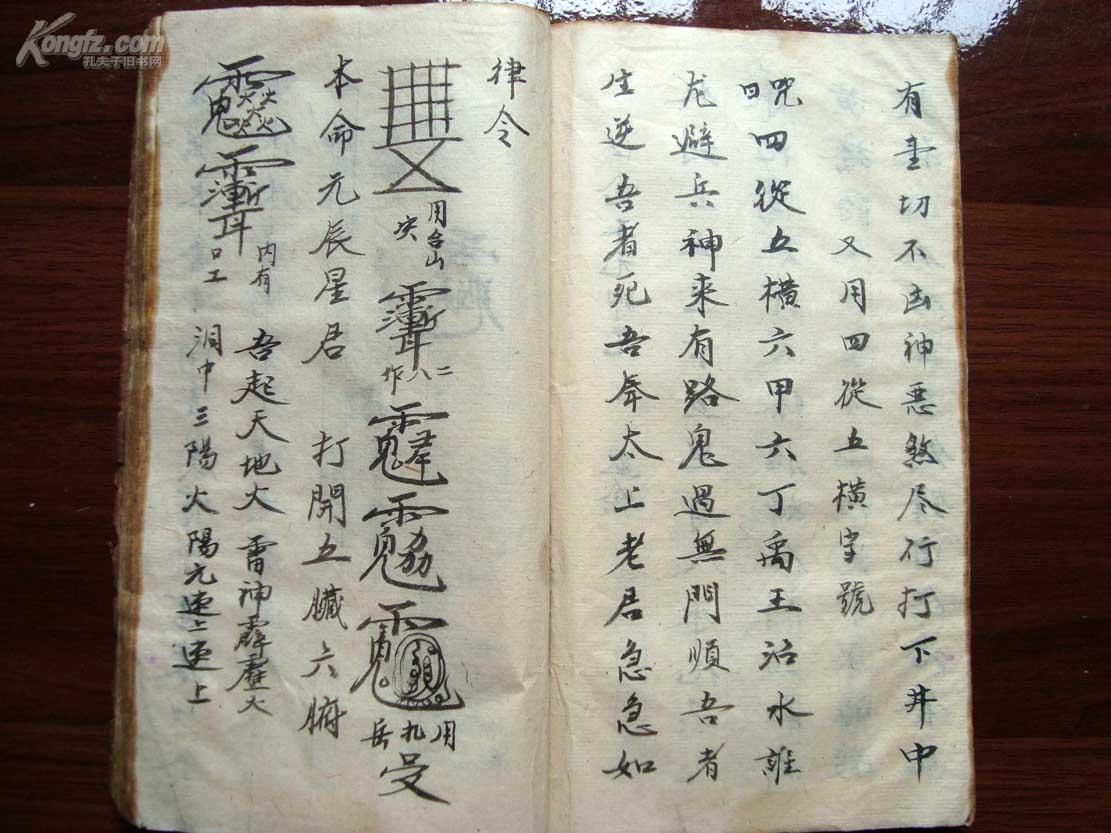 有壹切不凶神惡煞尽行打下井中
又用四從五橫字號
咒曰四從五橫六甲六丁禹王治水誰
龙避兵神来有路鬼過無門順吾者
生逆吾者死吾奉太上老君急急如
律令
用台山
二八作
用九岳
本命元辰星君 打開五臟六腑
内有
口工
吾起天地火雷神霹靂火
洞中三陽火陽元速上速上
Kongfz.com
孔夫子旧书网